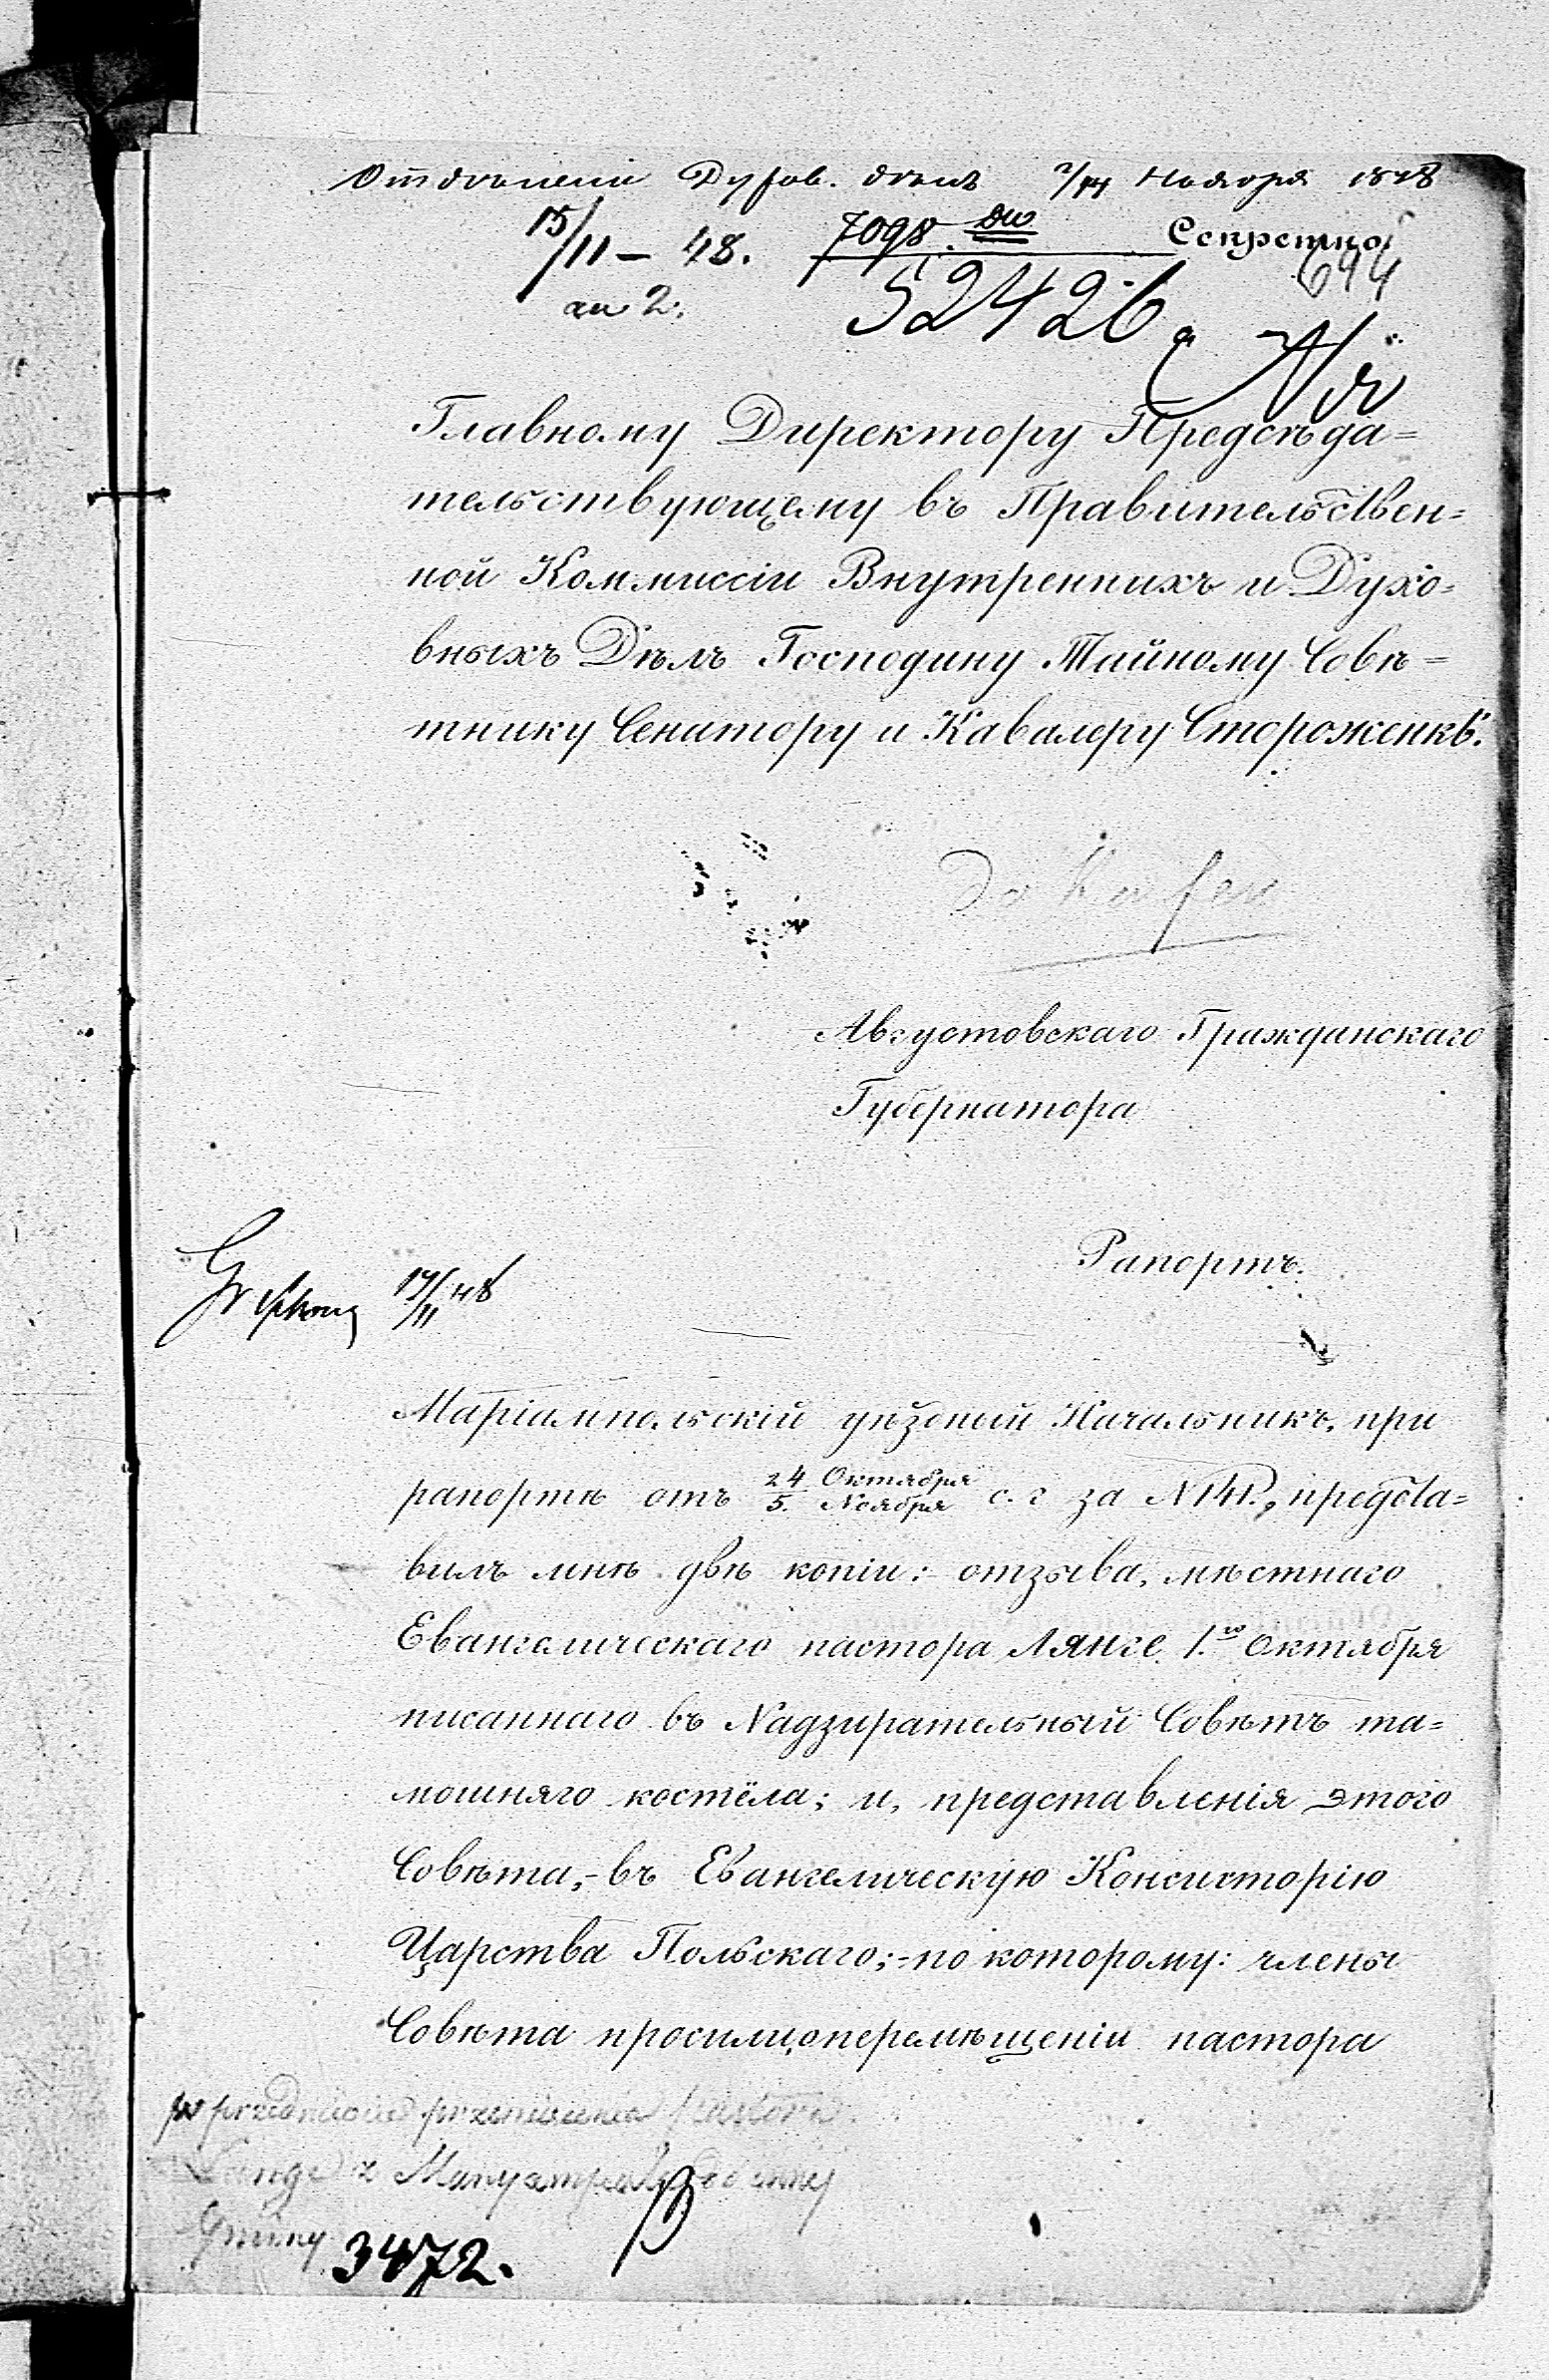 Отделение Духов. делъ 2/14 Ноября 1848
15/11 – 48. 7098. Секретно
694
52426
Главному Директору Предсѣда=
тельствующему въ Правительствен=
ной Коммиссіи Внутреннихъ и Духо=
вныхъ Дѣлъ Господину Тайному Совѣ=
тнику Сенатору и Кавалеру Стороженкѣ.
Августовскаго Гражданскаго
Губернатора
Рапортъ.
17/11 48
Маріампольскій уѣздный Начальникъ, при
рапортѣ отъ 24 Октября / 5. Ноября с. г за N 141., предста=
вилъ мнѣ двѣ копіи: отзыва, мѣстнаго
Евангелическаго пастора Лянге 1.го Октября
писаннаго въ Надзирательный Совѣтъ та=
мошняго костёла; и, представленія этого
Совѣта,- въ Евангелическую Консисторію
Царства Польскаго;- по которому: члены
Совѣта просили, о перемѣщеніи пастора
w przedmiocie przeniesienia Pastora
Lange z Maryampola do innej
Gminy
3472.